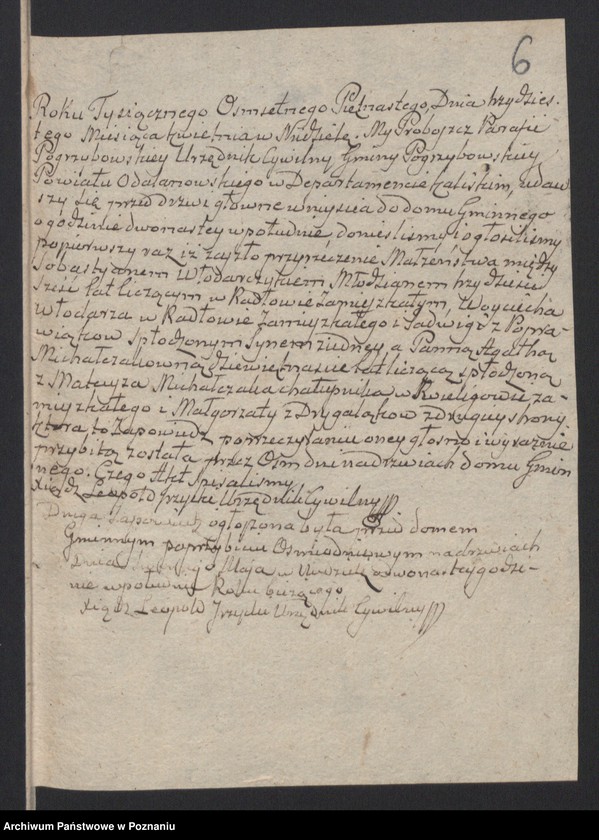 6
Roku Tysiącznego Osmsetnego Piętnastego Dnia trzydzies-
tego Miesiąca kwietnia w Niedzielę. My Proboszcz Parafii
Pogrzybowskiey Urzędnik Cywilny Gminy Pogrzybowskiey
Powiatu Odalanowskiego w Departamencie kaliskim, udaw
szy się przed drzwi główne wniyscia do domu Gminnego
o godzinie dwonastey w południe, donieslismy i ogłosilismy
popierwszy raz iz zaszło przyrzeczenie Małzenstwa między
Sobastyonem Włodarczykiem Młodzianem trzydzieści
Szesc lat liczącym w Radłowie Zamieszkałym, Woyciecha
Włodarza w Radłowie Zamieszkałego i Jadwigi z Popra-
wiąków Spłodzonym Synem ziedney a Panną Agathą
Michalczakowną dziewiętnascie lat liczącą spłodzoną
z Mateusza Michalczaka chałupnika w Kwiligowie za-
mieszkałego i Małgorzaty z Drygaląkow z drugiey strony.
która to Zapowiedz poprzeczytaniu oney głosno i wyraznie
przybitą została przez Osm dni na drzwiach domu Gmin
nego. Czego Akt Spisalismy
Xiądz Leopold Urzędnik Cywilny
Druga Zapowiedz ogłoszona była przed domem
Gminnym poprzybiciu Osmiodniowym na drzwiach
dnia Maja w Niedzielę o dwonastey godzi-
nie w południe Roku biezącego
Xiądz Leopold Urzędnik Cywilny
Archiwum Państwowe w Poznaniu